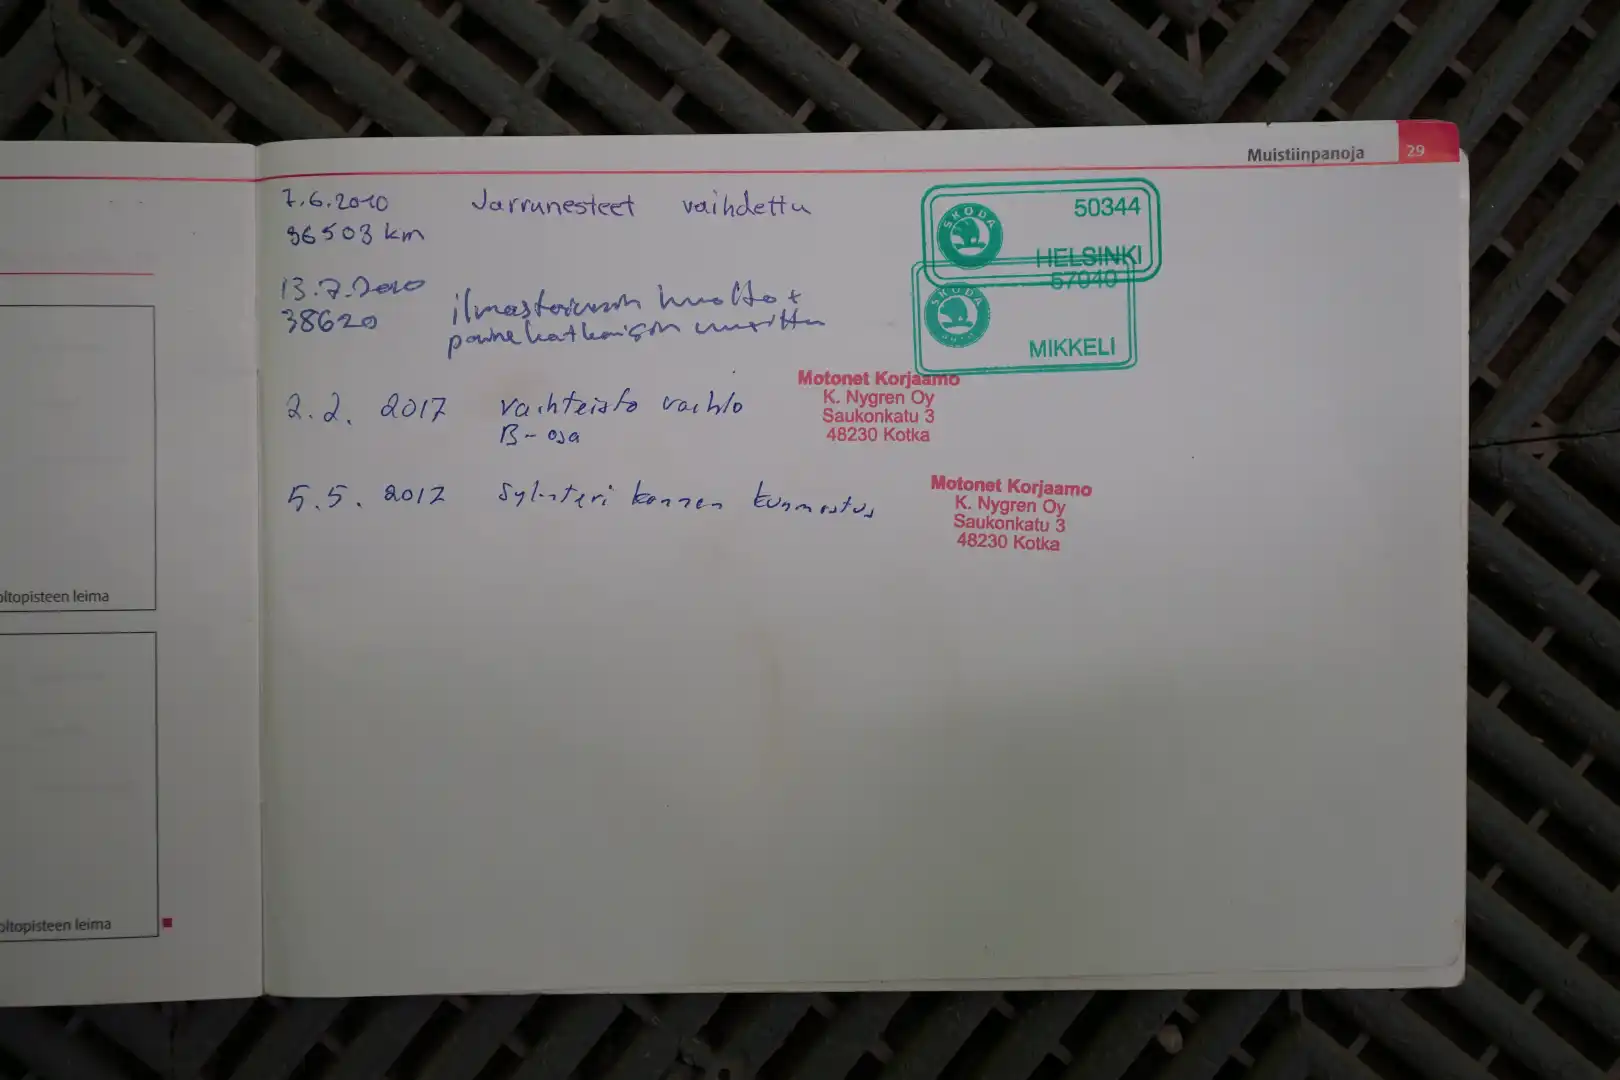 Muistiinpanoja 29
7.6.2010 Jarrunesteet vaihdettu
36503 km
SKODA
50344
HELSINKI
13.7.2010
38620
ilmastoinnin huolto +
painekatkaisin uusittu
SKODA
57040
MIKKELI
2.2. 2017 vaihteisto vaihto
B-osa
Motonet Korjaamo
K. Nygren Oy
Saukonkatu 3
48230 Kotka
5.5. 2017 Sylinteri kannen kunnostus
Motonet Korjaamo
K. Nygren Oy
Saukonkatu 3
48230 Kotka
oltopisteen leima
oltopisteen leima